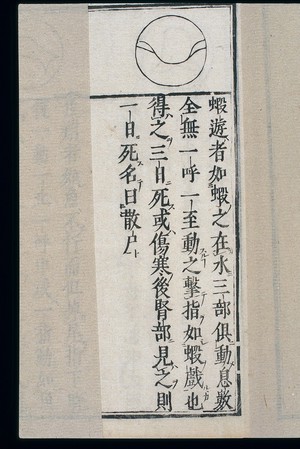 蝦遊者如蝦之在水三部俱動息數
全無一呼一至動之擊指如蝦戲也
得之三日死或傷寒後腎部見之則
一日死名曰散尸